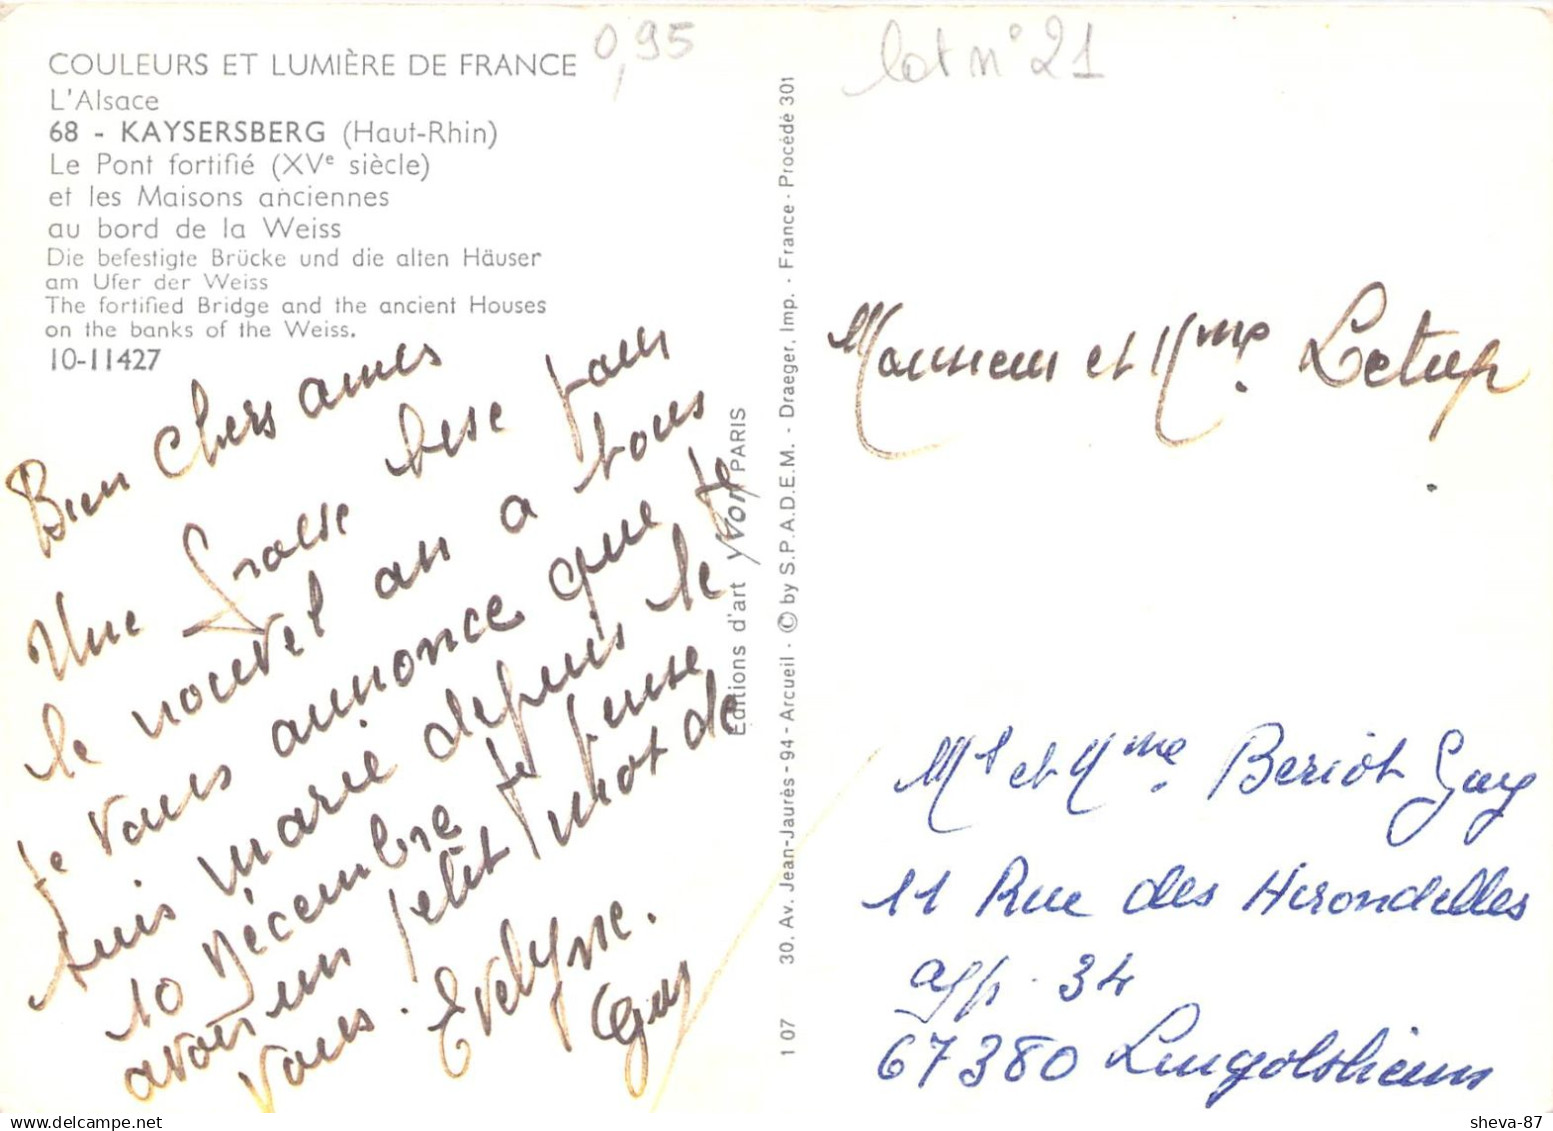 COULEURS ET LUMIÈRE DE FRANCE
L'Alsace
68 - KAYSERSBERG (Haut-Rhin)
Le Pont fortifié (XVe siècle)
et les Maisons anciennes
au bord de la Weiss
Die befestigte Brücke und die alten Häuser
am Ufer der Weiss
The fortified Bridge and the ancient Houses
on the banks of the Weiss.
10-11427
0,95
Bien Chers amies
Une grosse bese pour
le nouvel an a tous
je vous annonce que je
suis marié depuis le
10 Décembre je pense
avoir un petit mot de
vous. Evelyne.
Guy
Editions d'art yvon PARIS
107 30. Av. Jean-Jaurès - 94 - Arcueil · © by S.P.A.D.E.M. - Draeger, Imp. - France · Procédé 301
lot n° 21
Monsieur et Mme Letup
Mr et Mme Beriot Guy
11 Rue des Hirondelles
app. 34
67380 Lingolsheim
sheva-87